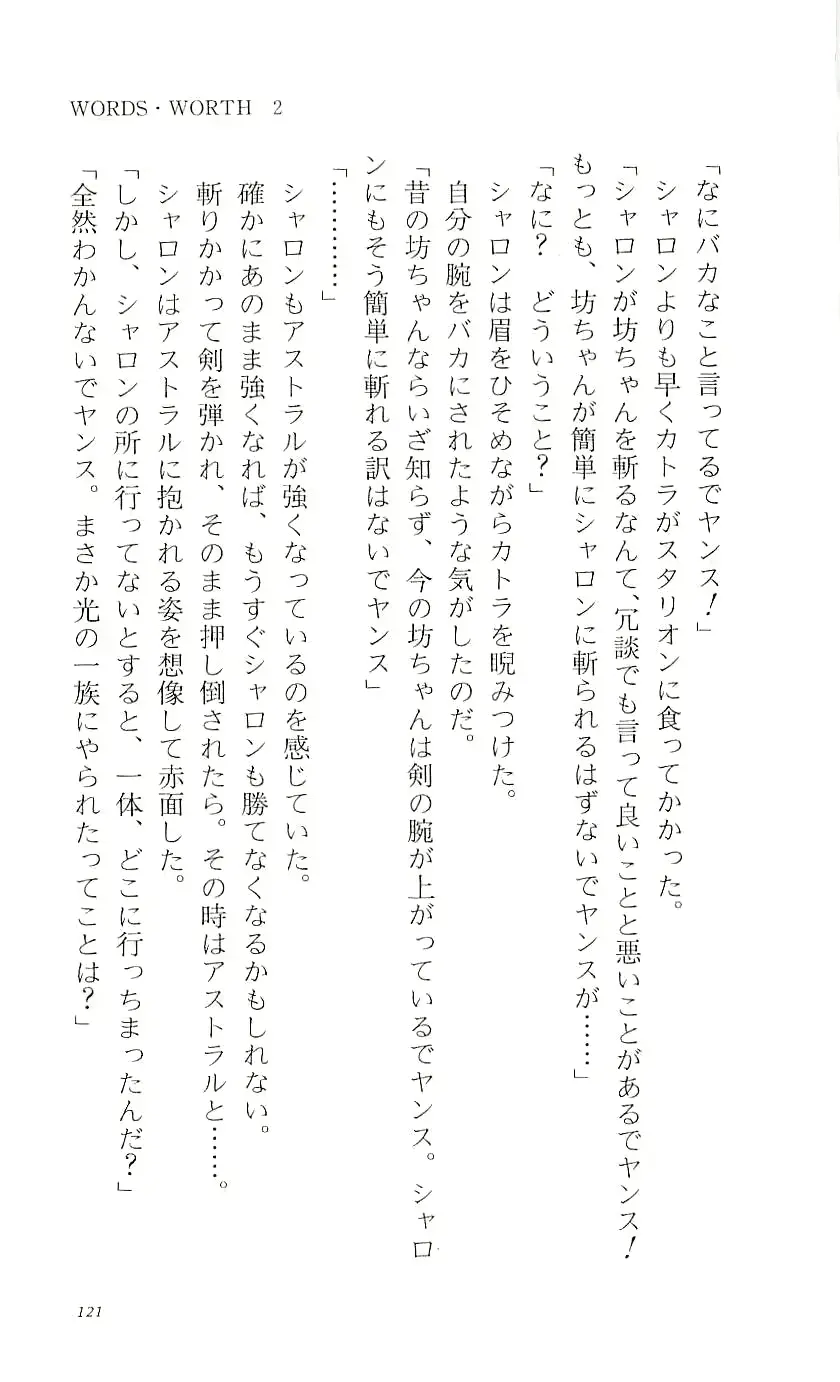 WORDS・WORTH 2
「なにバカなこと言ってるでヤンス！」
シャロンよりも早くカトラがスタリオンに食ってかかった。
「シャロンが坊ちゃんを斬るなんて、冗談でも言って良いことと悪いことがあるでヤンス！
もっとも、坊ちゃんが簡単にシャロンに斬られるはずないでヤンスが……」
「なに？　どういうこと？」
シャロンは眉をひそめながらカトラを睨みつけた。
自分の腕をバカにされたような気がしたのだ。
「昔の坊ちゃんならいざ知らず、今の坊ちゃんは剣の腕が上がっているでヤンス。シャロ
ンにもそう簡単に斬れる訳はないでヤンス」
「…………」
シャロンもアストラルが強くなっているのを感じていた。
確かにあのまま強くなれば、もうすぐシャロンも勝てなくなるかもしれない。
斬りかかって剣を弾かれ、そのまま押し倒されたら。その時はアストラルと……。
シャロンはアストラルに抱かれる姿を想像して赤面した。
「しかし、シャロンの所に行ってないとすると、一体、どこに行っちまったんだ？」
「全然わかんないでヤンス。まさか光の一族にやられたってことは？」
121